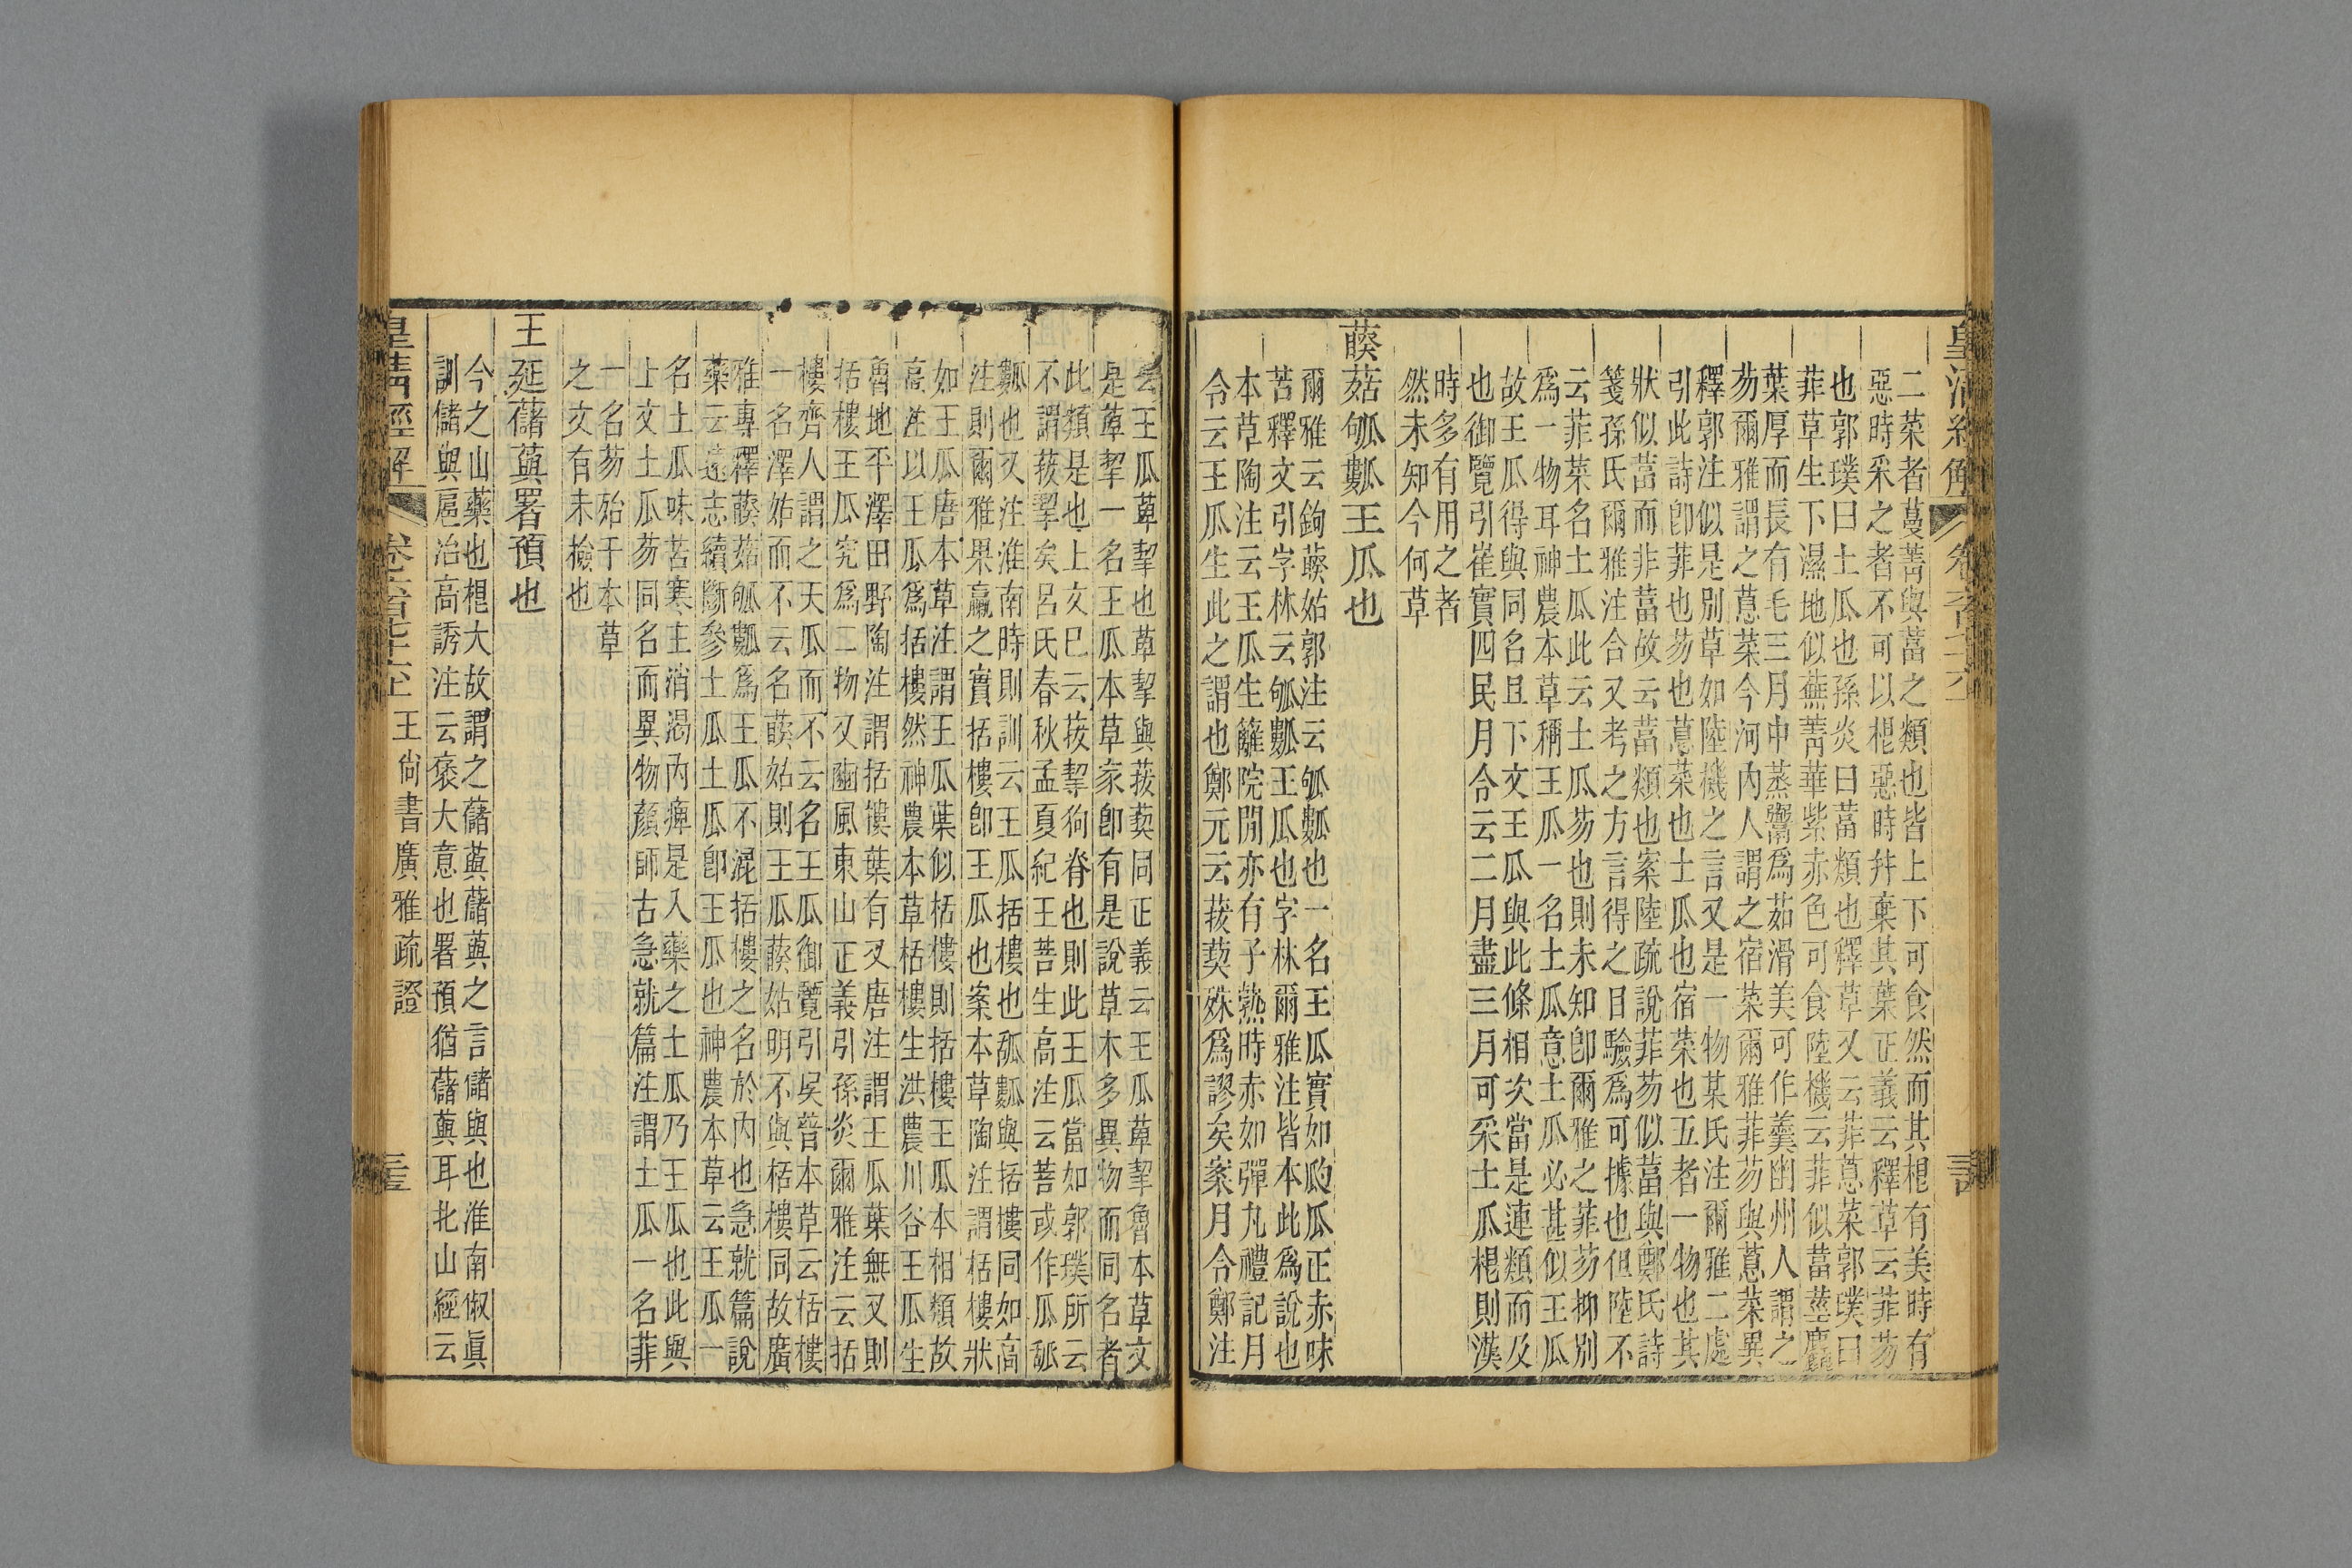 二菜者蔓菁與葍之類也皆上下可食然而其根有美時有
惡時采之者不可以根惡時幷棄其葉正義云釋草云菲芴
也郭璞曰土瓜也孫炎曰葍類也釋草又云菲蒠菜郭璞曰
菲草生下濕地似蕪菁華紫赤色可食陸機云菲似葍莖麤
葉厚而長有毛三月中蒸鬻爲茹滑美可作羹幽州人謂之
芴爾雅謂之蒠菜今河內人謂之宿菜爾雅菲芴與蒠菜異
釋郭注似是別草如陸機之言又是一物某氏注爾雅二處
引此詩卽菲也芴也蒠菜也土瓜也宿菜也五者一物也其
狀似葍而非葍故云葍類也案陸疏說菲芴似葍與鄭氏詩
箋孫氏爾雅注合又考之方言得之目驗爲可據也但陸不
云菲菜名土瓜此云土瓜芴也則未知卽爾雅之菲芴抑別
爲一物耳神農本草稱王瓜一名土瓜意土瓜必甚似王瓜
故王瓜得與同名且下文王瓜與此條相次當是連類而及
也御覽引崔寔四民月令云二月盡三月可采土瓜根則漢
時多有用之者
然未知今何草
藈菇㼋瓤王瓜也
爾雅云鉤藈姑郭注云㼋瓤也一名王瓜實如瓝瓜正赤味
苦釋文引字林云㼋瓤王瓜也字林爾雅注皆本此爲說也
本草陶注云王瓜生籬院閒亦有子熟時赤如彈丸禮記月
令云王瓜生此之謂也鄭元云菝葜殊爲謬矣案月令鄭注
云王瓜萆挈也草挈與菝葜同正義云王瓜萆挈魯本草文
是萆挈一名王瓜本草家卽有是說草木多異物而同名者
此類是也上文巳云菝挈狗脊也則此王瓜當如郭璞所云
不謂菝挈矣呂氏春秋孟夏紀王菩生高注云菩或作瓜瓠
瓤也又注淮南時則訓云王瓜括樓也瓠瓤與括樓同如高
注則爾雅果蠃之實括樓卽王瓜也案本草陶注謂栝樓狀
如王瓜唐本草注謂王瓜葉似栝樓則括樓王瓜本相類故
高注以王瓜爲括樓然神農本草栝樓生洪農川谷王瓜生
魯地平澤田野陶注謂括樓葉有叉唐注謂王瓜葉無叉則
括樓王瓜究爲二物又豳風東山正義引孫炎爾雅注云括
樓齊人謂之天瓜而不云名王瓜御覽引吳普本草云栝樓
一名澤姑而不云名藈姑則王瓜藈姑明不與栝樓同故廣
雅專釋藈菇㼋瓤爲王瓜不混括樓之名於內也急就篇說
藥云遠志續斷參土瓜土瓜卽王瓜也神農本草云王瓜一
名土瓜味苦寒主消渴內痺是入藥之土瓜乃王瓜也此與
上文土瓜芴同名而異物顏師古急就篇注謂土瓜一名菲
一名芴殆于本草
之文有未檢也
王延藷藇署預也
今之山藥也根大故謂之藷藇藷藇之言儲與也淮南俶眞
訓儲與扈冶高誘注云襃大意也署預猶藷藇耳北山經云
皇淸經解
王尙書廣雅疏證